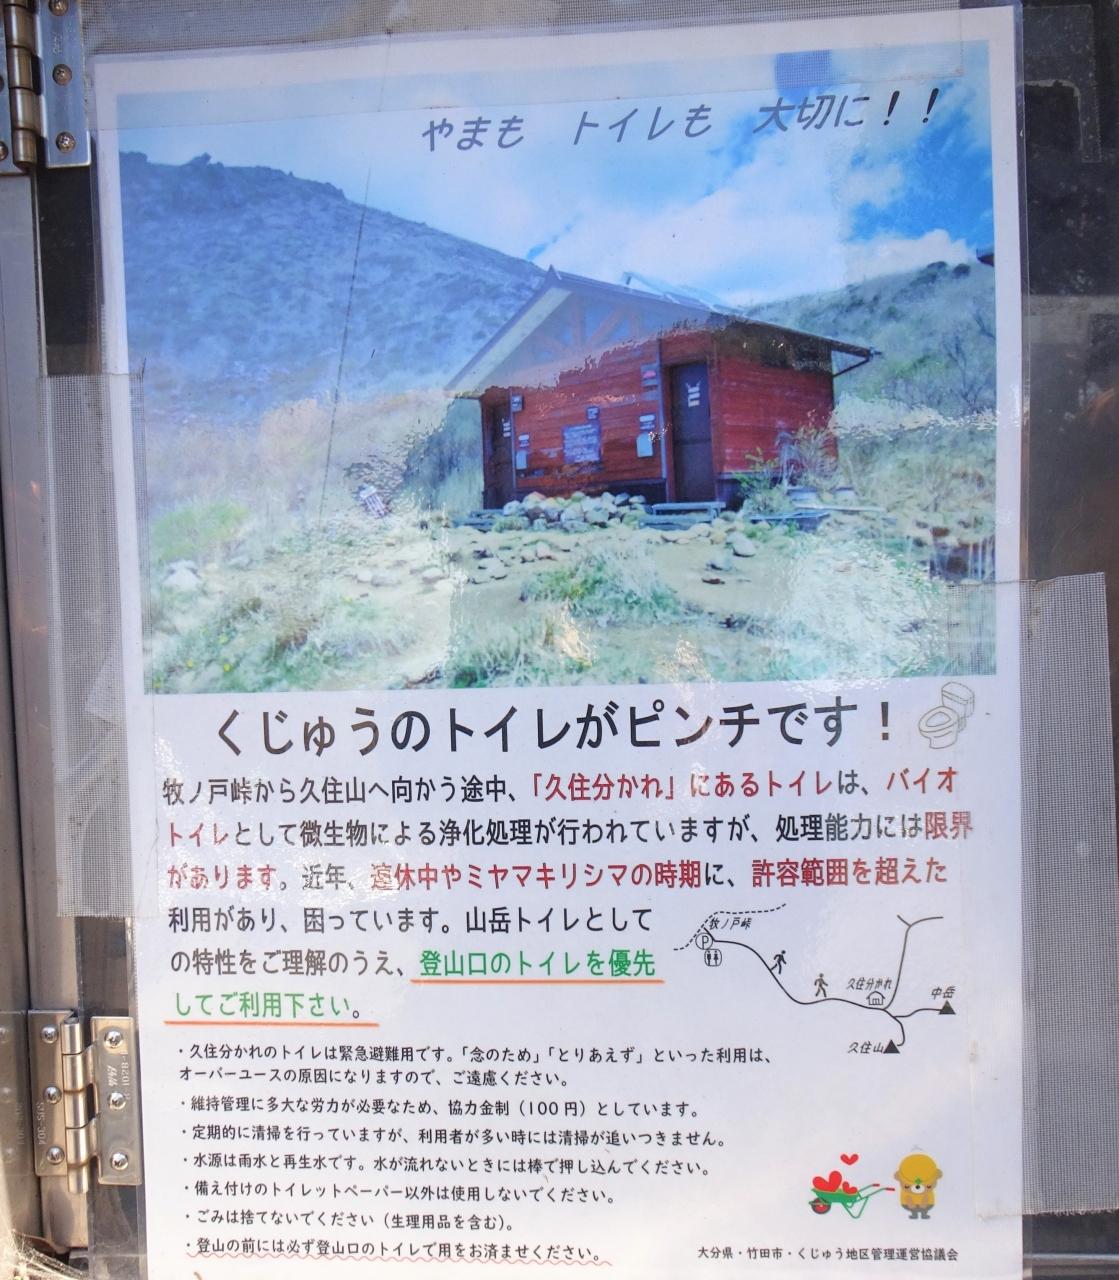 やまも トイレも 大切に！！
くじゅうのトイレがピンチです！
牧ノ戸峠から久住山へ向かう途中、「久住分かれ」にあるトイレは、バイオ
トイレとして微生物による浄化処理が行われていますが、処理能力には限界
があります。近年、連休中やミヤマキリシマの時期に、許容範囲を超えた
利用があり、困っています。山岳トイレとして
の特性をご理解のうえ、登山口のトイレを優先
してご利用下さい。
牧ノ戸峠
P
久住分かれ
中岳
久住山
・久住分かれのトイレは緊急避難用です。「念のため」「とりあえず」といった利用は、
オーバーユースの原因になりますので、ご遠慮ください。
・維持管理に多大な労力が必要なため、協力金制（100円）としています。
・定期的に清掃を行っていますが、利用者が多い時には清掃が追いつきません。
・水源は雨水と再生水です。水が流れないときには棒で押し込んでください。
・備え付けのトイレットペーパー以外は使用しないでください。
・ごみは捨てないでください（生理用品を含む）。
・登山の前には必ず登山口のトイレで用をお済ませください。
大分県・竹田市・くじゅう地区管理運営協議会